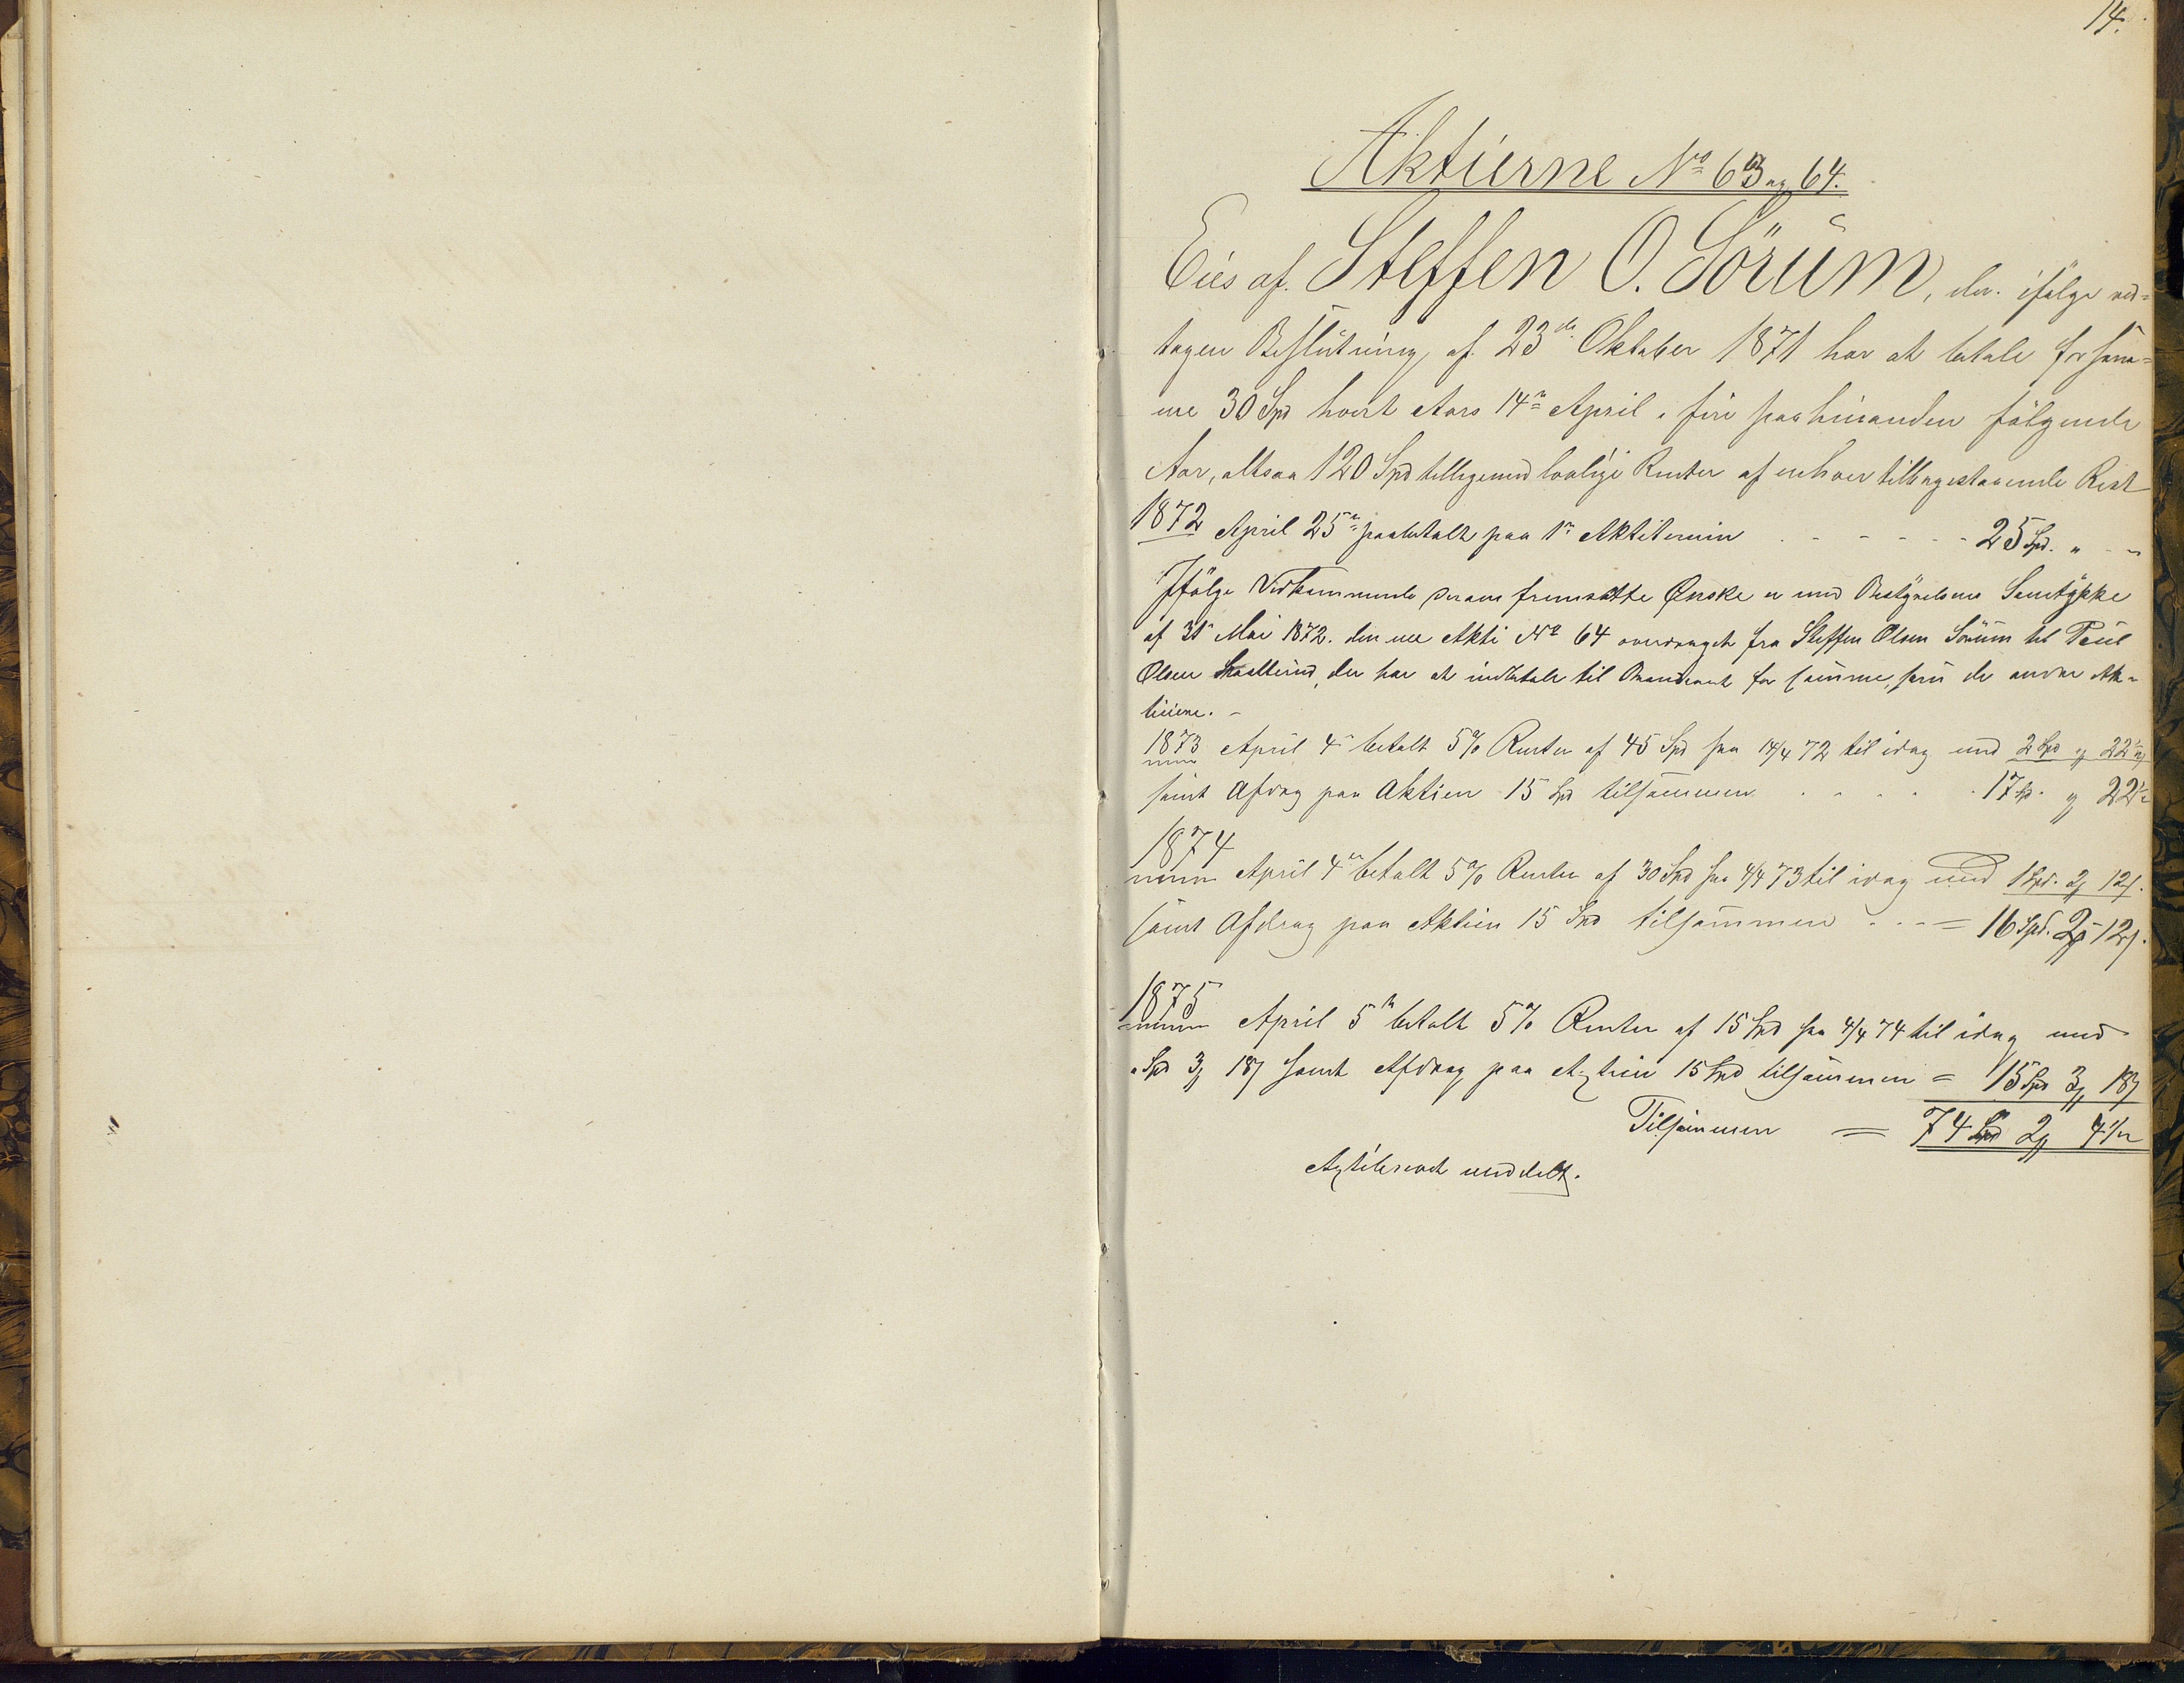 14.
Aktierne No 63 og 64.
Eies af Steffen O. Sörum, der ifølge ved=
tagen Beslutning af 23de Oktober 1871 har at betale for sam=
me 30 Spd hvert Aars 14de April i fire paa hinanden følgende
Aar, altsaa 120 Spd tilligemed lovlige Renter af enhver tilbagestaaende Rest
1872 April 25de paabetalt paa 1ste Aktietermin - - - - - 25 Spd. " - "
Ifølge Vedkommendes derom fremsatte Ønske er med Bestyrelsens Samtykke
af 31te Mai 1872. den ene Aktie No 64 overdraget fra Steffen Olsen Sörum til Paul
Olsen der har at indbetale til for samme, som de andre Ak=
tieeiere. -
1873 April 4de betalt 5% Renter af 45 Spd fra 14/4 72 til idag med 2 Spd " 22 1/2
samt Afdrag paa Aktien 15 Spd tilsammen . . . . . 17 Sp. " 22 1/2
1874
April 4de betalt 5% Renter af 30 Spd fra 4/4 73 til idag med 1 Spd. 2 12.
samt Afdrag paa Aktien 15 Spd tilsammen - - - = 16 Spd. 2 - 12.
1875
April 5te betalt 5% Renter af 15 Spd fra 4/4 74 til idag med
" Spd 3 18 samt Afdrag paa Aktien 15 Spd tilsammen = 15 Spd 3 18
Tilsammen = 74 Spd 2 4 1/2
Aktiebrevet meddelt.